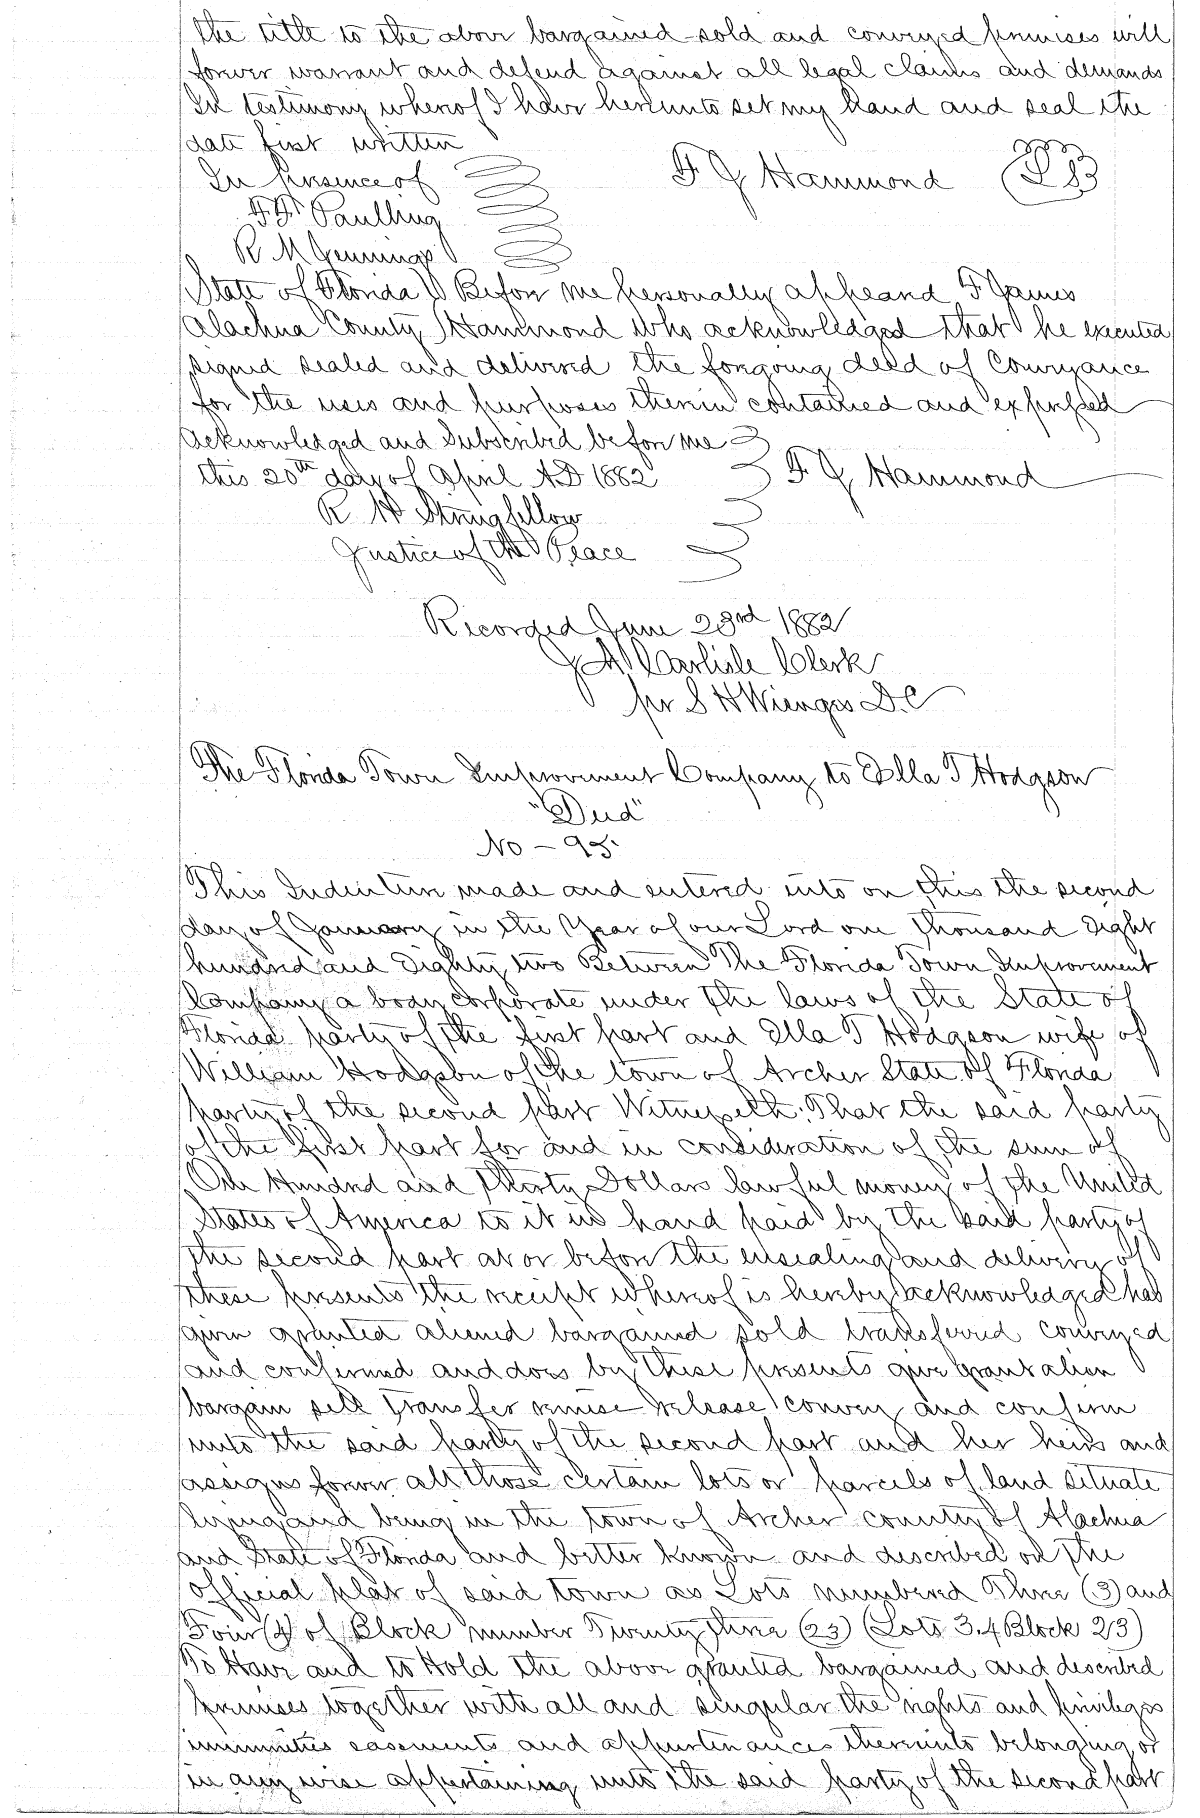 the title to the above bargained sold and conveyed premises will
forever warrant and defend against all legal claims and demands
In testimony whereof I have hereunto set my hand and seal the
date first written
In presence of F J Hammond LS
F. F. Paulling
R M Jennings
State of Florida ) Before me personally appeard F James
Alachua County ) Hammond who acknowledged that he executed
signed sealed and delivered the foregoing deed of Conveyance
for the uses and purposes therein contained and expressed
Acknowledged and Subscribed before me
this 20th day of April AD 1882 F J Hammond
R H Stringfellow
Justice of the Peace
Recorded June 23rd 1882
J A Carlisle Clerk
pr S H Wienges D.C
The Florida Town Improvement Company to Ella T Hodgson
"Deed"
No - 95.
This Indenture made and entered into on this the second
day of January in the Year of our Lord one thousand Eight
hundred and Eighty two Between The Florida Town Improvement
Company a body corporate under the laws of the State of
Florida party of the first part and Ella T Hodgson wife of
William Hodgson of the town of Archer State of Florida
party of the second part Witnesseth: That the said party
of the first part for and in consideration of the sum of
One Hundred and thirty Dollars lawful money of the United
States of America to it in hand paid by the said party of
the second part at or before the ensealing and delivery of
these presents the receipt whereof is hereby acknowledged has
given granted aliened bargained sold transferred conveyed
and confirmed and does by these presents give grant alien
bargain sell transfer remise release convey and confirm
unto the said party of the second part and her heirs and
assigns forever all those certain lots or parcels of land situate
lying and being in the town of Archer county of Alachua
and State of Florida and better known and described on the
official plat of said town as Lots numbered Three (3) and
Four (4) of Block number Twenty three (23) (Lots 3.4 Block 23)
To Have and to Hold the above granted bargained and described
premises together with all and singular the rights and privileges
immunities easements and appurtenances thereunto belonging or
in any wise appertaining unto the said party of the second part